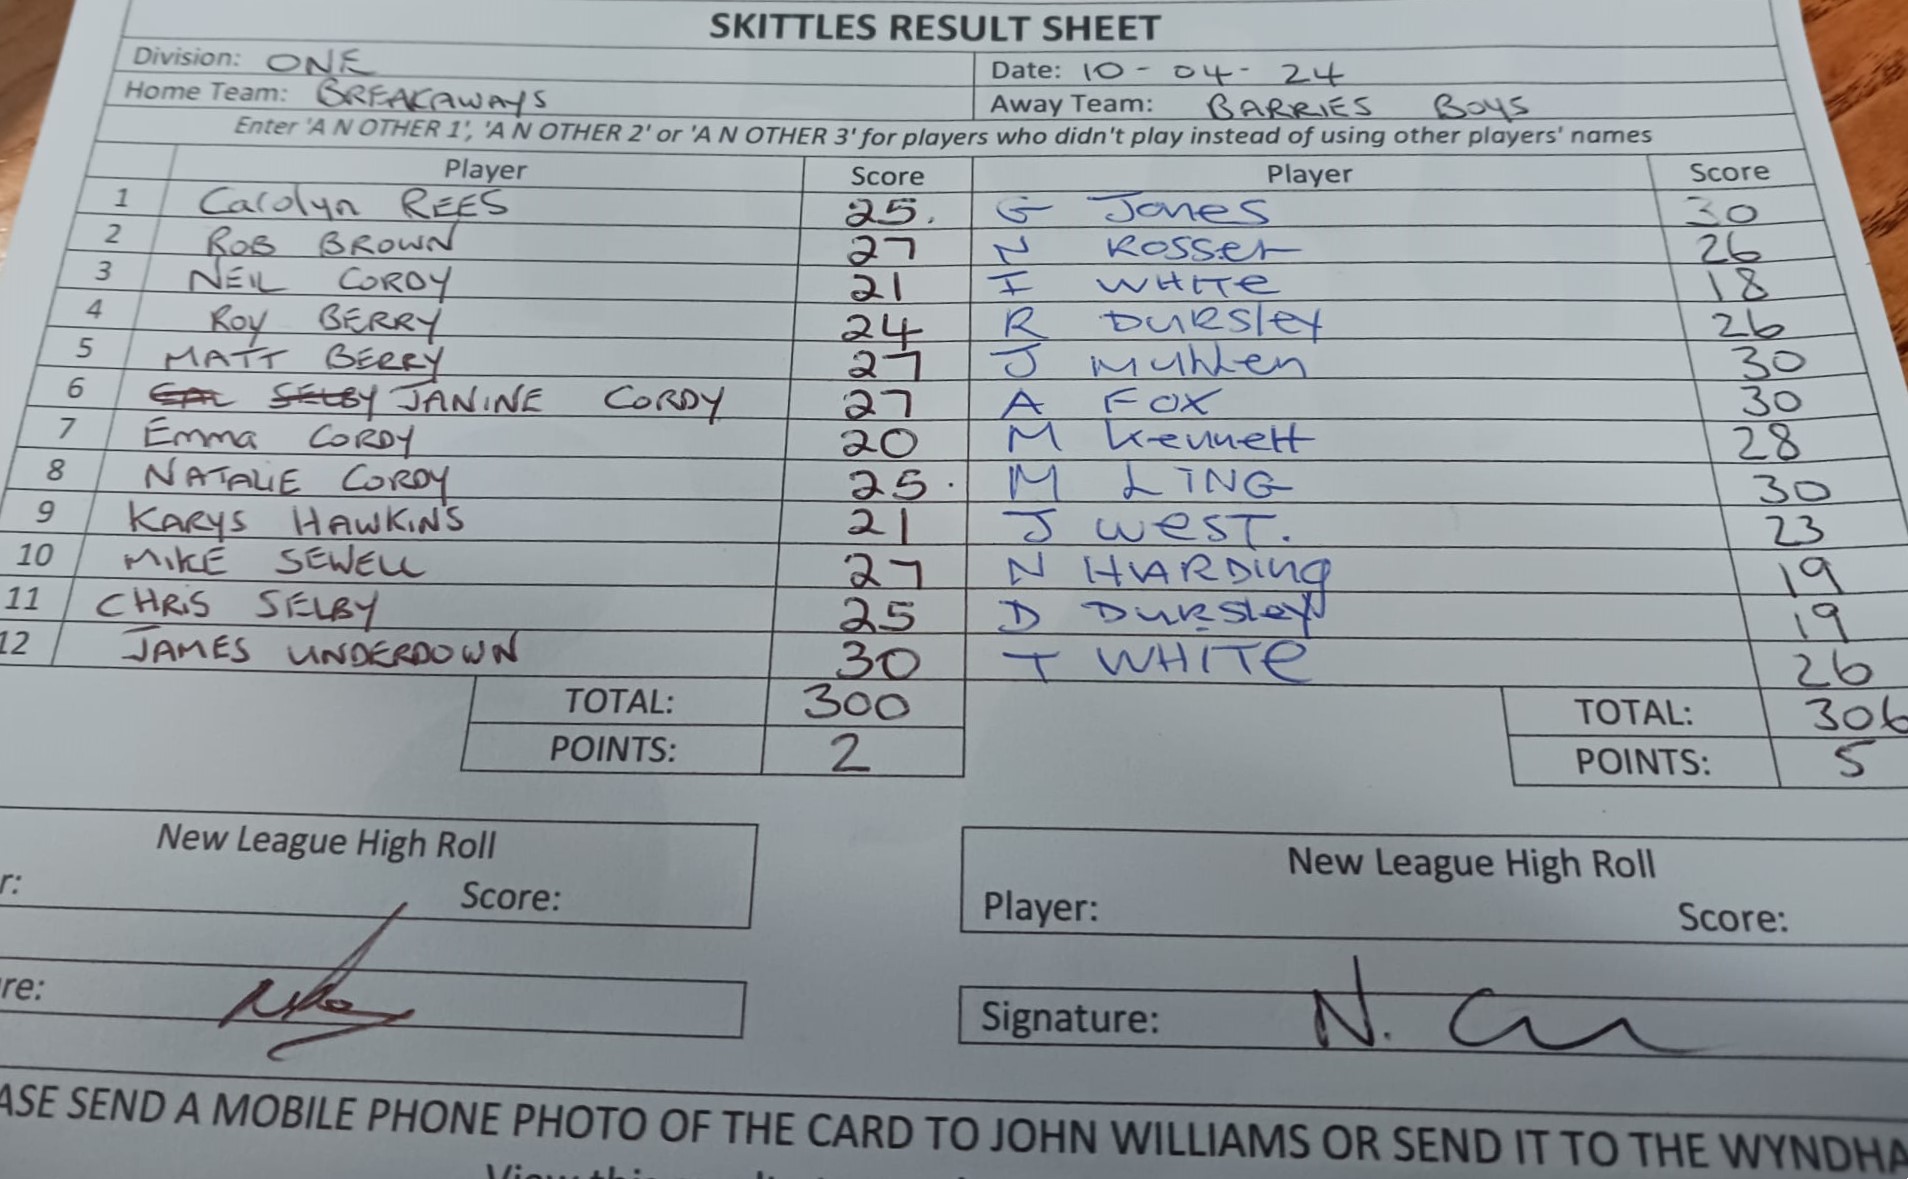 SKITTLES RESULT SHEET
Division: ONE Date: 10-04-24
Home Team: BREAKAWAYS Away Team: BARRIES BOYS
Enter 'A N OTHER 1', 'A N OTHER 2' or 'A N OTHER 3' for players who didn't play instead of using other players' names
Player Score Player Score
1 Carolyn REES 25. G Jones 30
2 ROB BROWN 27 N Rosser 26
3 NEIL CORDY 21 I WHITe 18
4 ROY BERRY 24 R DURSley 26
5 MATT BERRY 27 J 30
6 SELBY JANINE CORDY 27 A FOX 30
7 Emma CORDY 20 M Kennett 28
8 NATALIE CORDY 25. M LING 30
9 KARYS HAWKINS 21 J WeST. 23
10 MIKE SEWELL 27 N HARDing 19
11 CHRIS SELBY 25 D DURSley 19
12 JAMES UNDERDOWN 30 T WHITe 26
TOTAL: 300 TOTAL: 306
POINTS: 2 POINTS: 5
New League High Roll New League High Roll
r: Score: Player: Score:
re: Signature: N.
ASE SEND A MOBILE PHONE PHOTO OF THE CARD TO JOHN WILLIAMS OR SEND IT TO THE WYNDHA